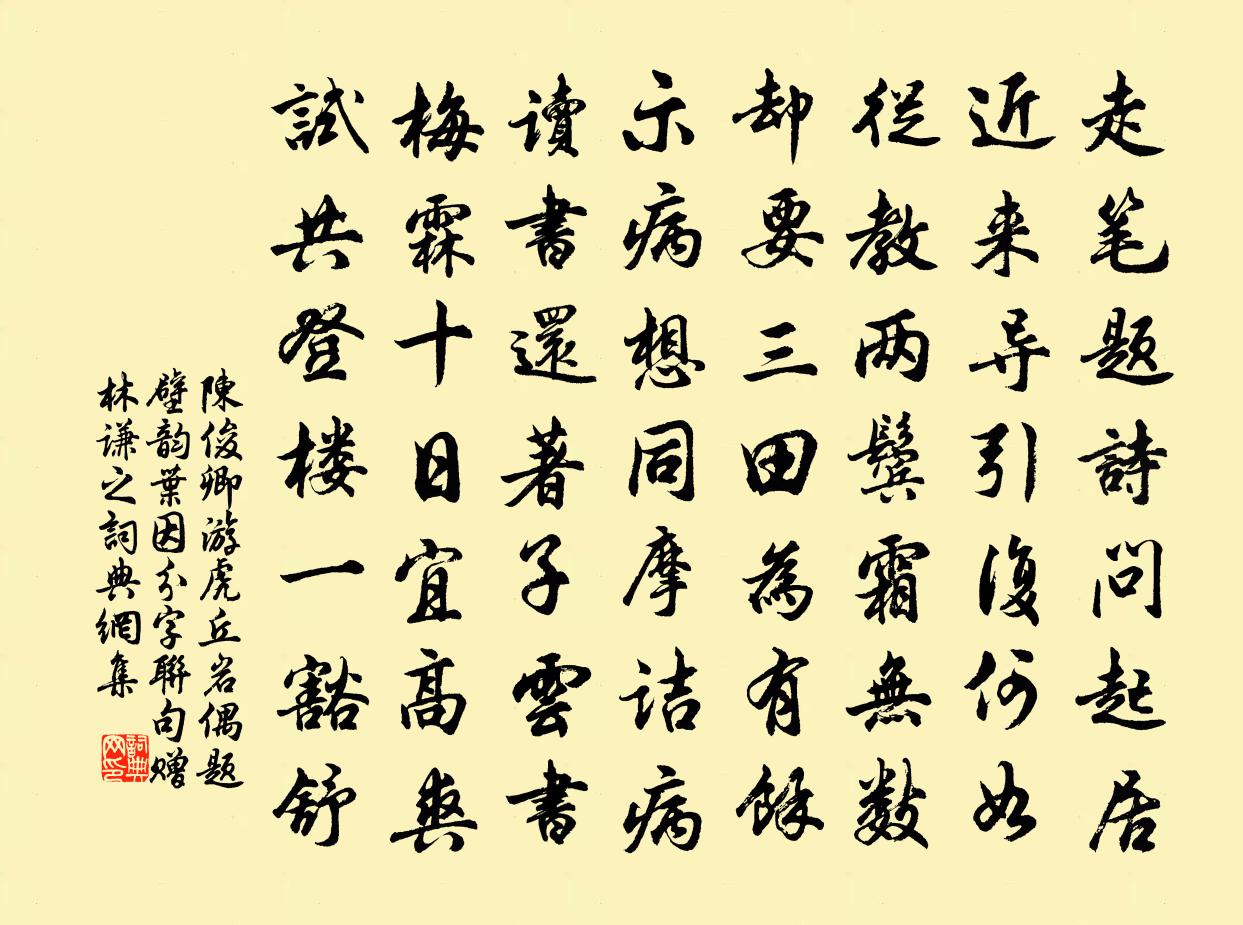 走笔题詩问起居
近来导引復何如
從教两鬓霜無数
却要三田為有馀
示病想同摩诘病
读書還著子雲書
梅霖十日宜高爽
試共登楼一豁舒
陳俊卿游虎丘岩偶题
壁韵葉因分字聯句赠
林谦之詞典網集
詞典
网印